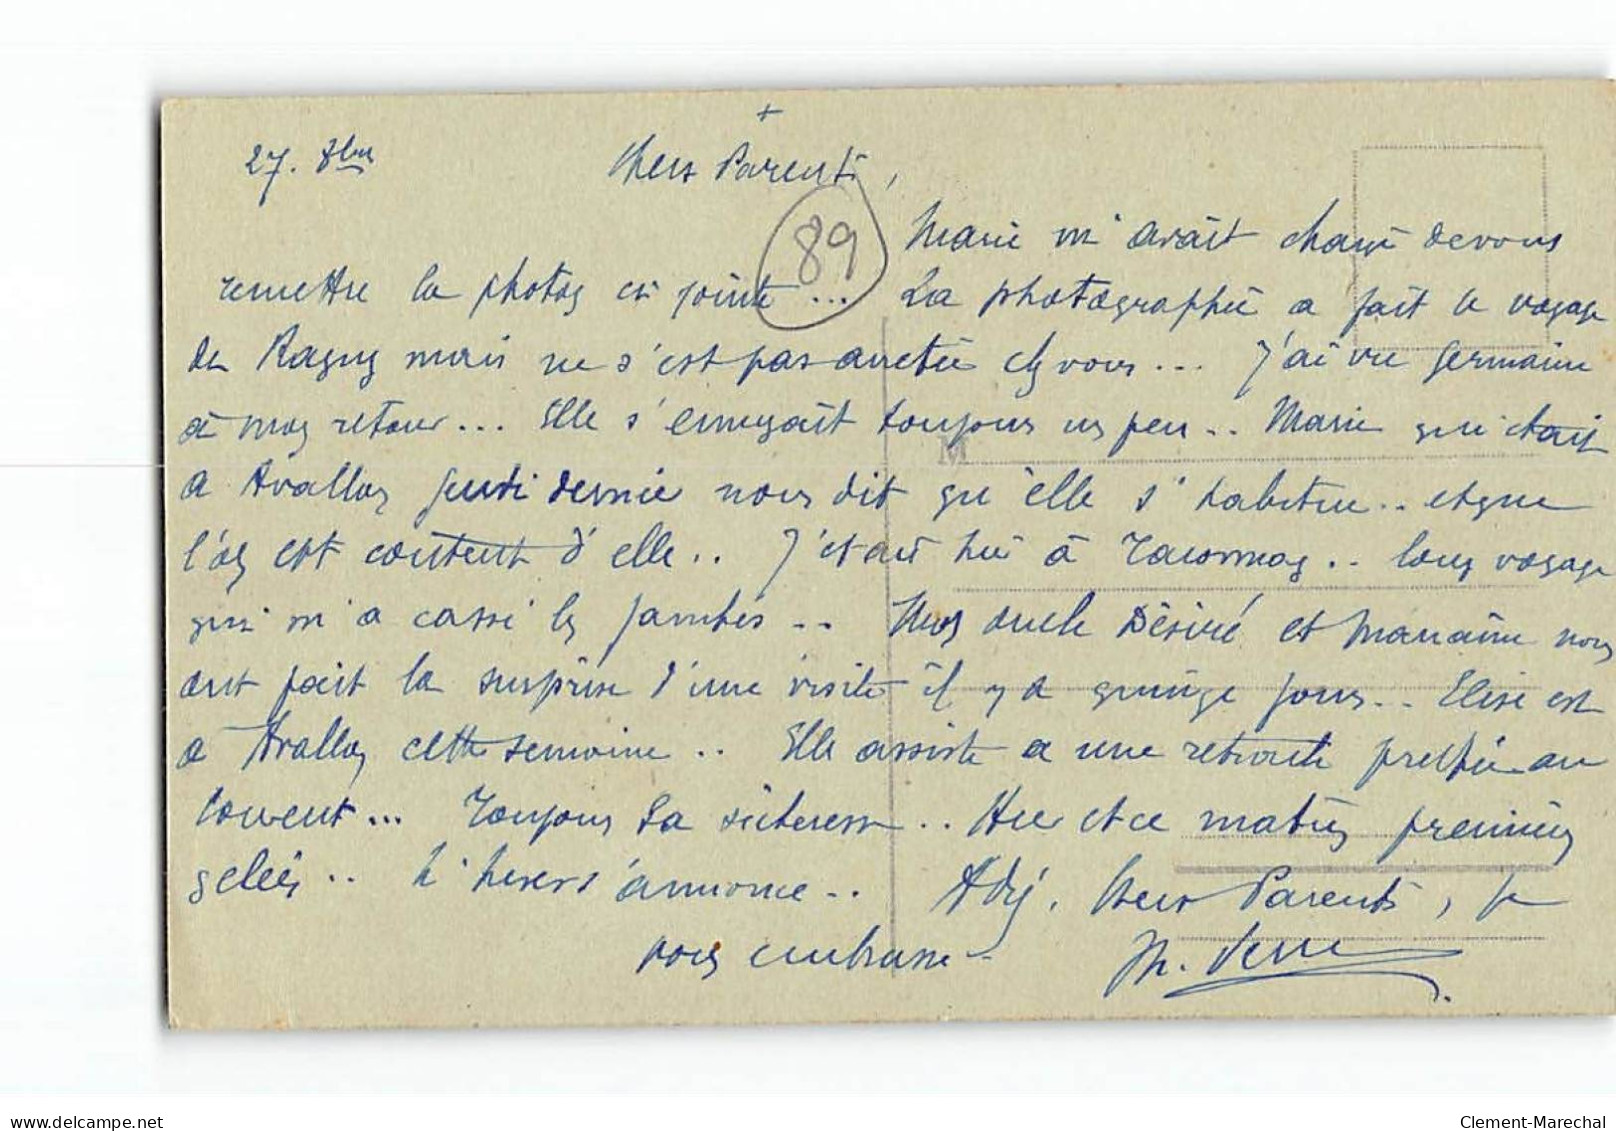 +
27. 8bre Chers Parents,
89
Marie m'avait chargé de vous
remettre la photo ci jointe ... La photographiée a fait le voyage
de Ragny mais ne s'est pas arrêtée chez vous... J'ai vu Germaine
à mon retour... Elle s'ennuyait toujours un peu.. Marie qui était
M
à Avallon jeudi dernier nous dit qu'elle s'habitue.. et que
l'on est content d'elle.. J'étais hier à .. long voyage
qui m'a cassé les jambes .. Mon oncle Désiré et Marraine nous
ont fait la surprise d'une visite il y a quinze jours.. Elise est
à Avallon cette semaine .. Elle assiste à une retraite prêchée au
couvent... Toujours la sécheresse .. Hier et ce matin premières
gelées .. L'hiver s'annonce .. Adieu, Chers Parents, je
vous embrasse -
delcampe.net
Clement-Marechal